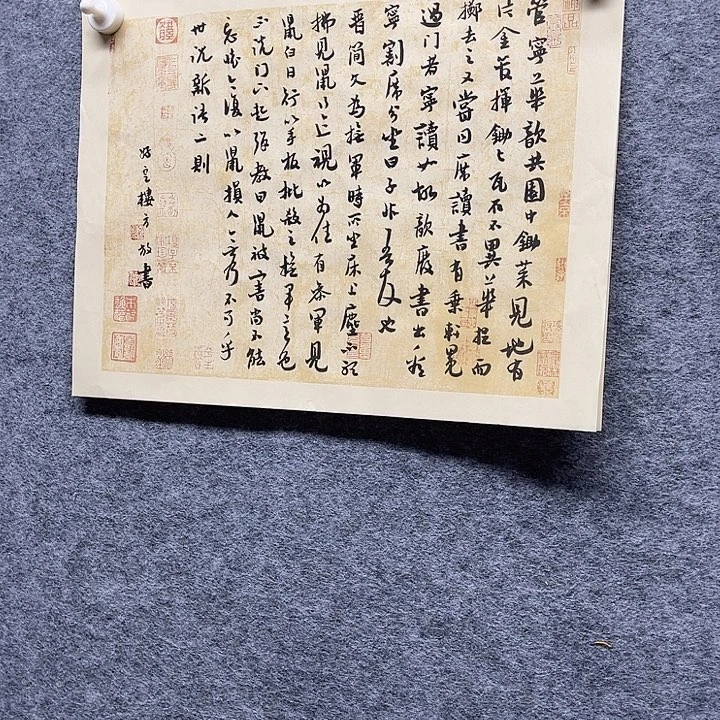 管寧華歆共園中鋤菜見地有
片金管揮鋤與瓦石不異華捉而
擲去之又嘗同席讀書有乘軒冕
過門者寧讀如故歆廢書出看
寧割席分坐曰子非吾友也
晉簡文為撫軍時所坐床上塵不聽
拂見鼠行迹視以為佳有參軍見
鼠白日行以手板批殺之撫軍意色
不說門下起彈教曰鼠被害尚不能
忘懷今復以鼠損人無乃不可乎
世說新語二則
樓方放書